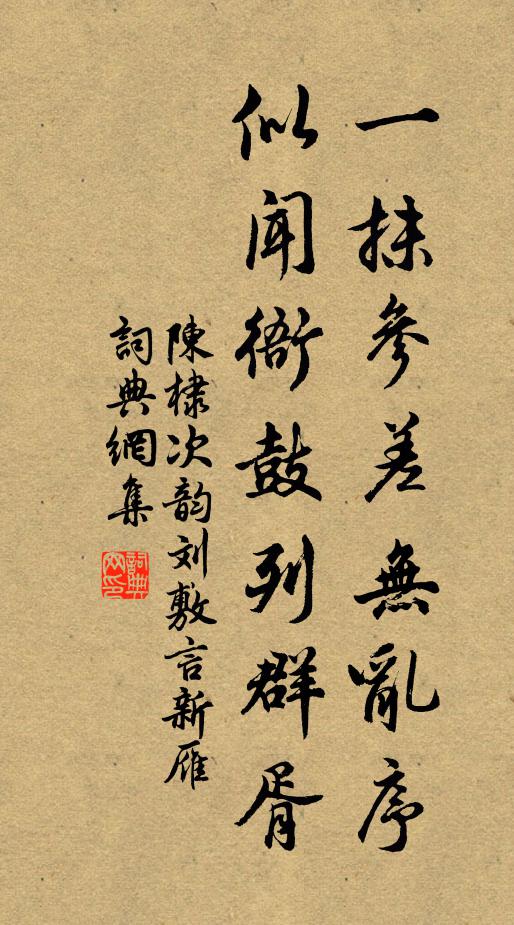 一抹參差無亂序
似聞衙鼓列群胥
陳棣次韵刘敷言新雁
詞典網集
詞典网印